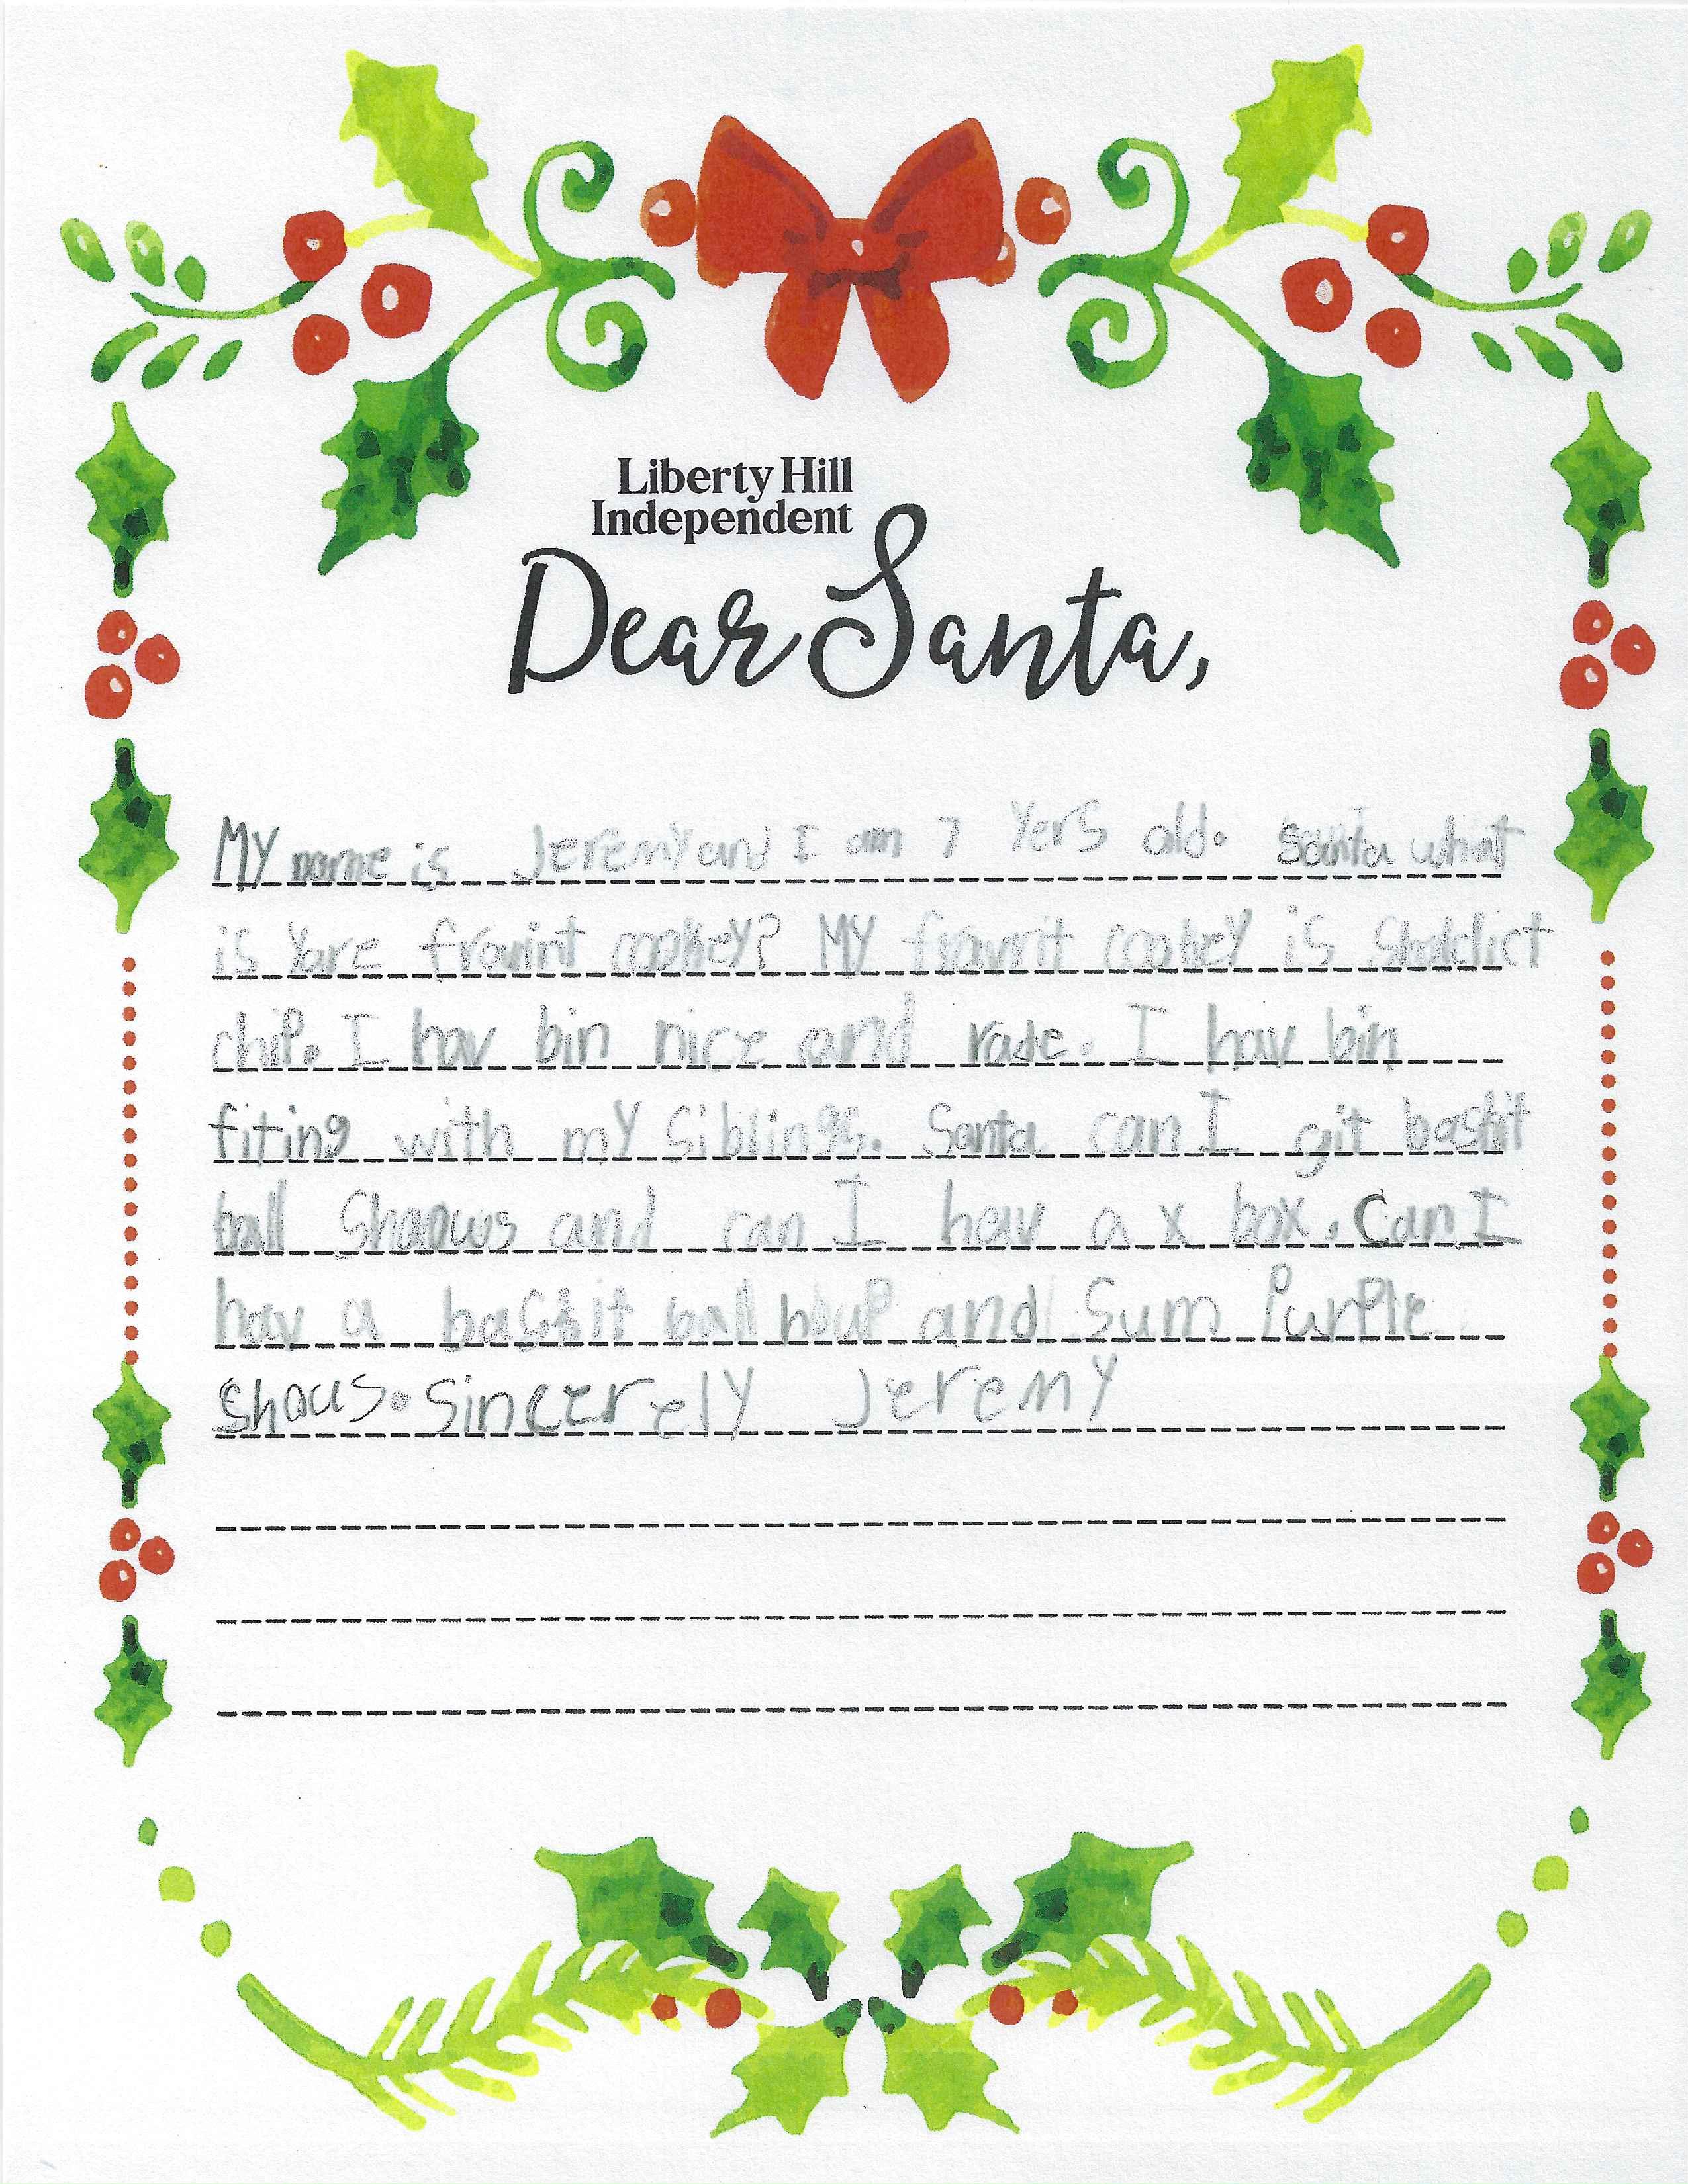 Liberty Hill
Independent
Dear Santa,
My name is Jeremy and I am 7 Yers old. Santa what
is Yore cookey? MY fravrit cookey is
chip. I hav bin nice and rude. I hav bin
fiting with my Siblings. Santa can I git baskit
ball Shaows and can I hav a x box. Can I
hav a baskit ball houp and Sum Purple
Shous. Sincerely Jeremy